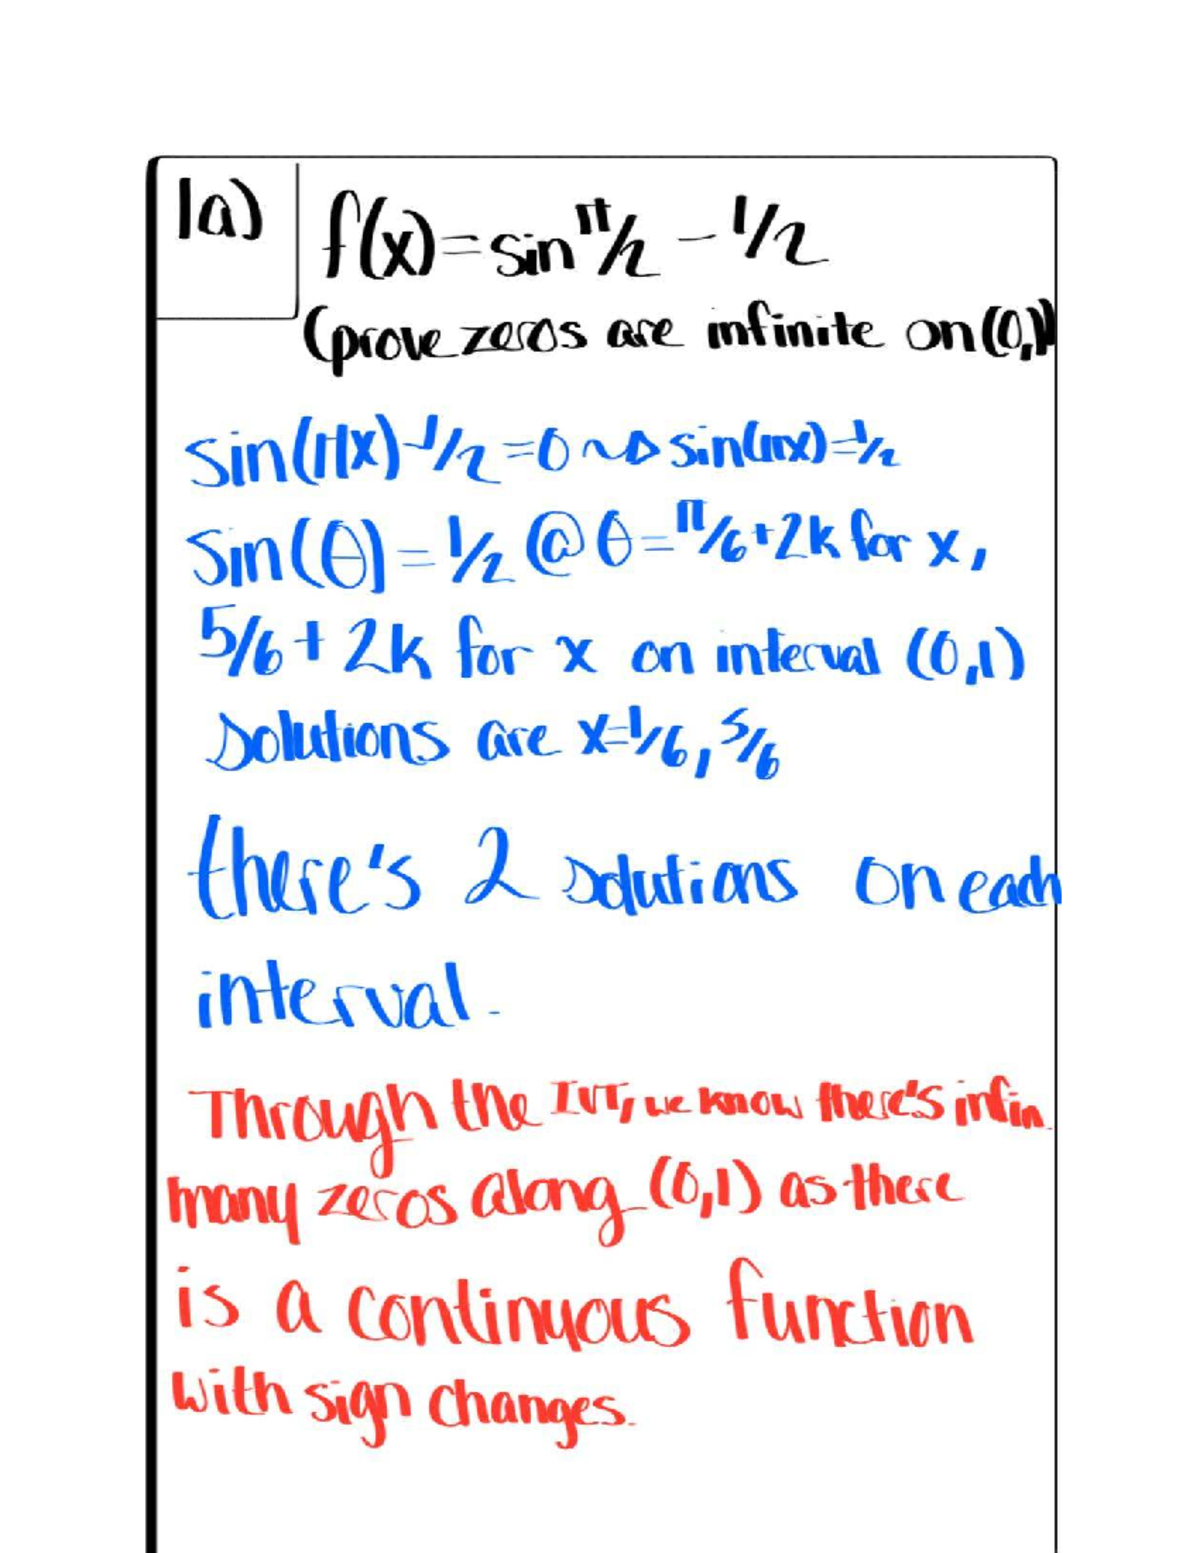 1a)
f(x)=sin π/2 - 1/2
(prove zeros are infinite on (0,1)
sin(πx)-1/2=0 ~> sin(πx)=1/2
Sin(θ)=1/2 @ θ=π/6+2k for x,
5/6+2k for x on interval (0,1)
solutions are x=1/6, 5/6
there's 2 solutions on each
interval.
Through the IVT, we know there's infin
many zeros along (0,1) as there
is a continuous function
with sign changes.